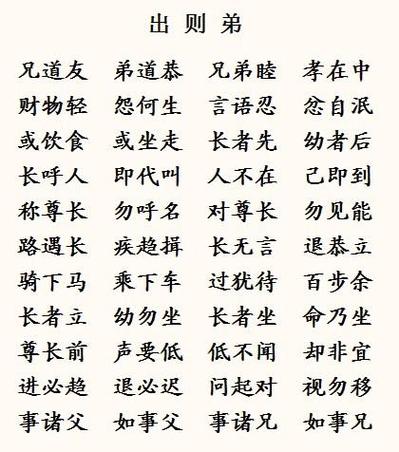 出则弟
兄道友 弟道恭 兄弟睦 孝在中
财物轻 怨何生 言语忍 忿自泯
或饮食 或坐走 长者先 幼者后
长呼人 即代叫 人不在 己即到
称尊长 勿呼名 对尊长 勿见能
路遇长 疾趋揖 长无言 退恭立
骑下马 乘下车 过犹待 百步余
长者立 幼勿坐 长者坐 命乃坐
尊长前 声要低 低不闻 却非宜
进必趋 退必迟 问起对 视勿移
事诸父 如事父 事诸兄 如事兄